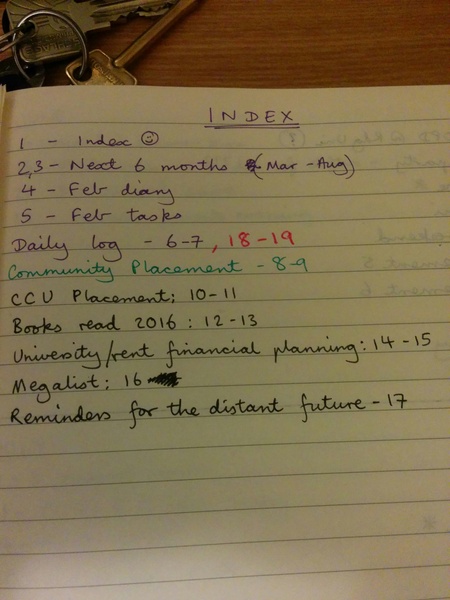 INDEX
1 - Index ☺
2,3 - Next 6 months (Mar - Aug)
4 - Feb diary
5 - Feb tasks
Daily log - 6-7, 18-19
Community Placement - 8-9
CCU Placement: 10-11
Books read 2016 : 12-13
University/rent financial planning: 14-15
Megalist: 16
Reminders for the distant future - 17